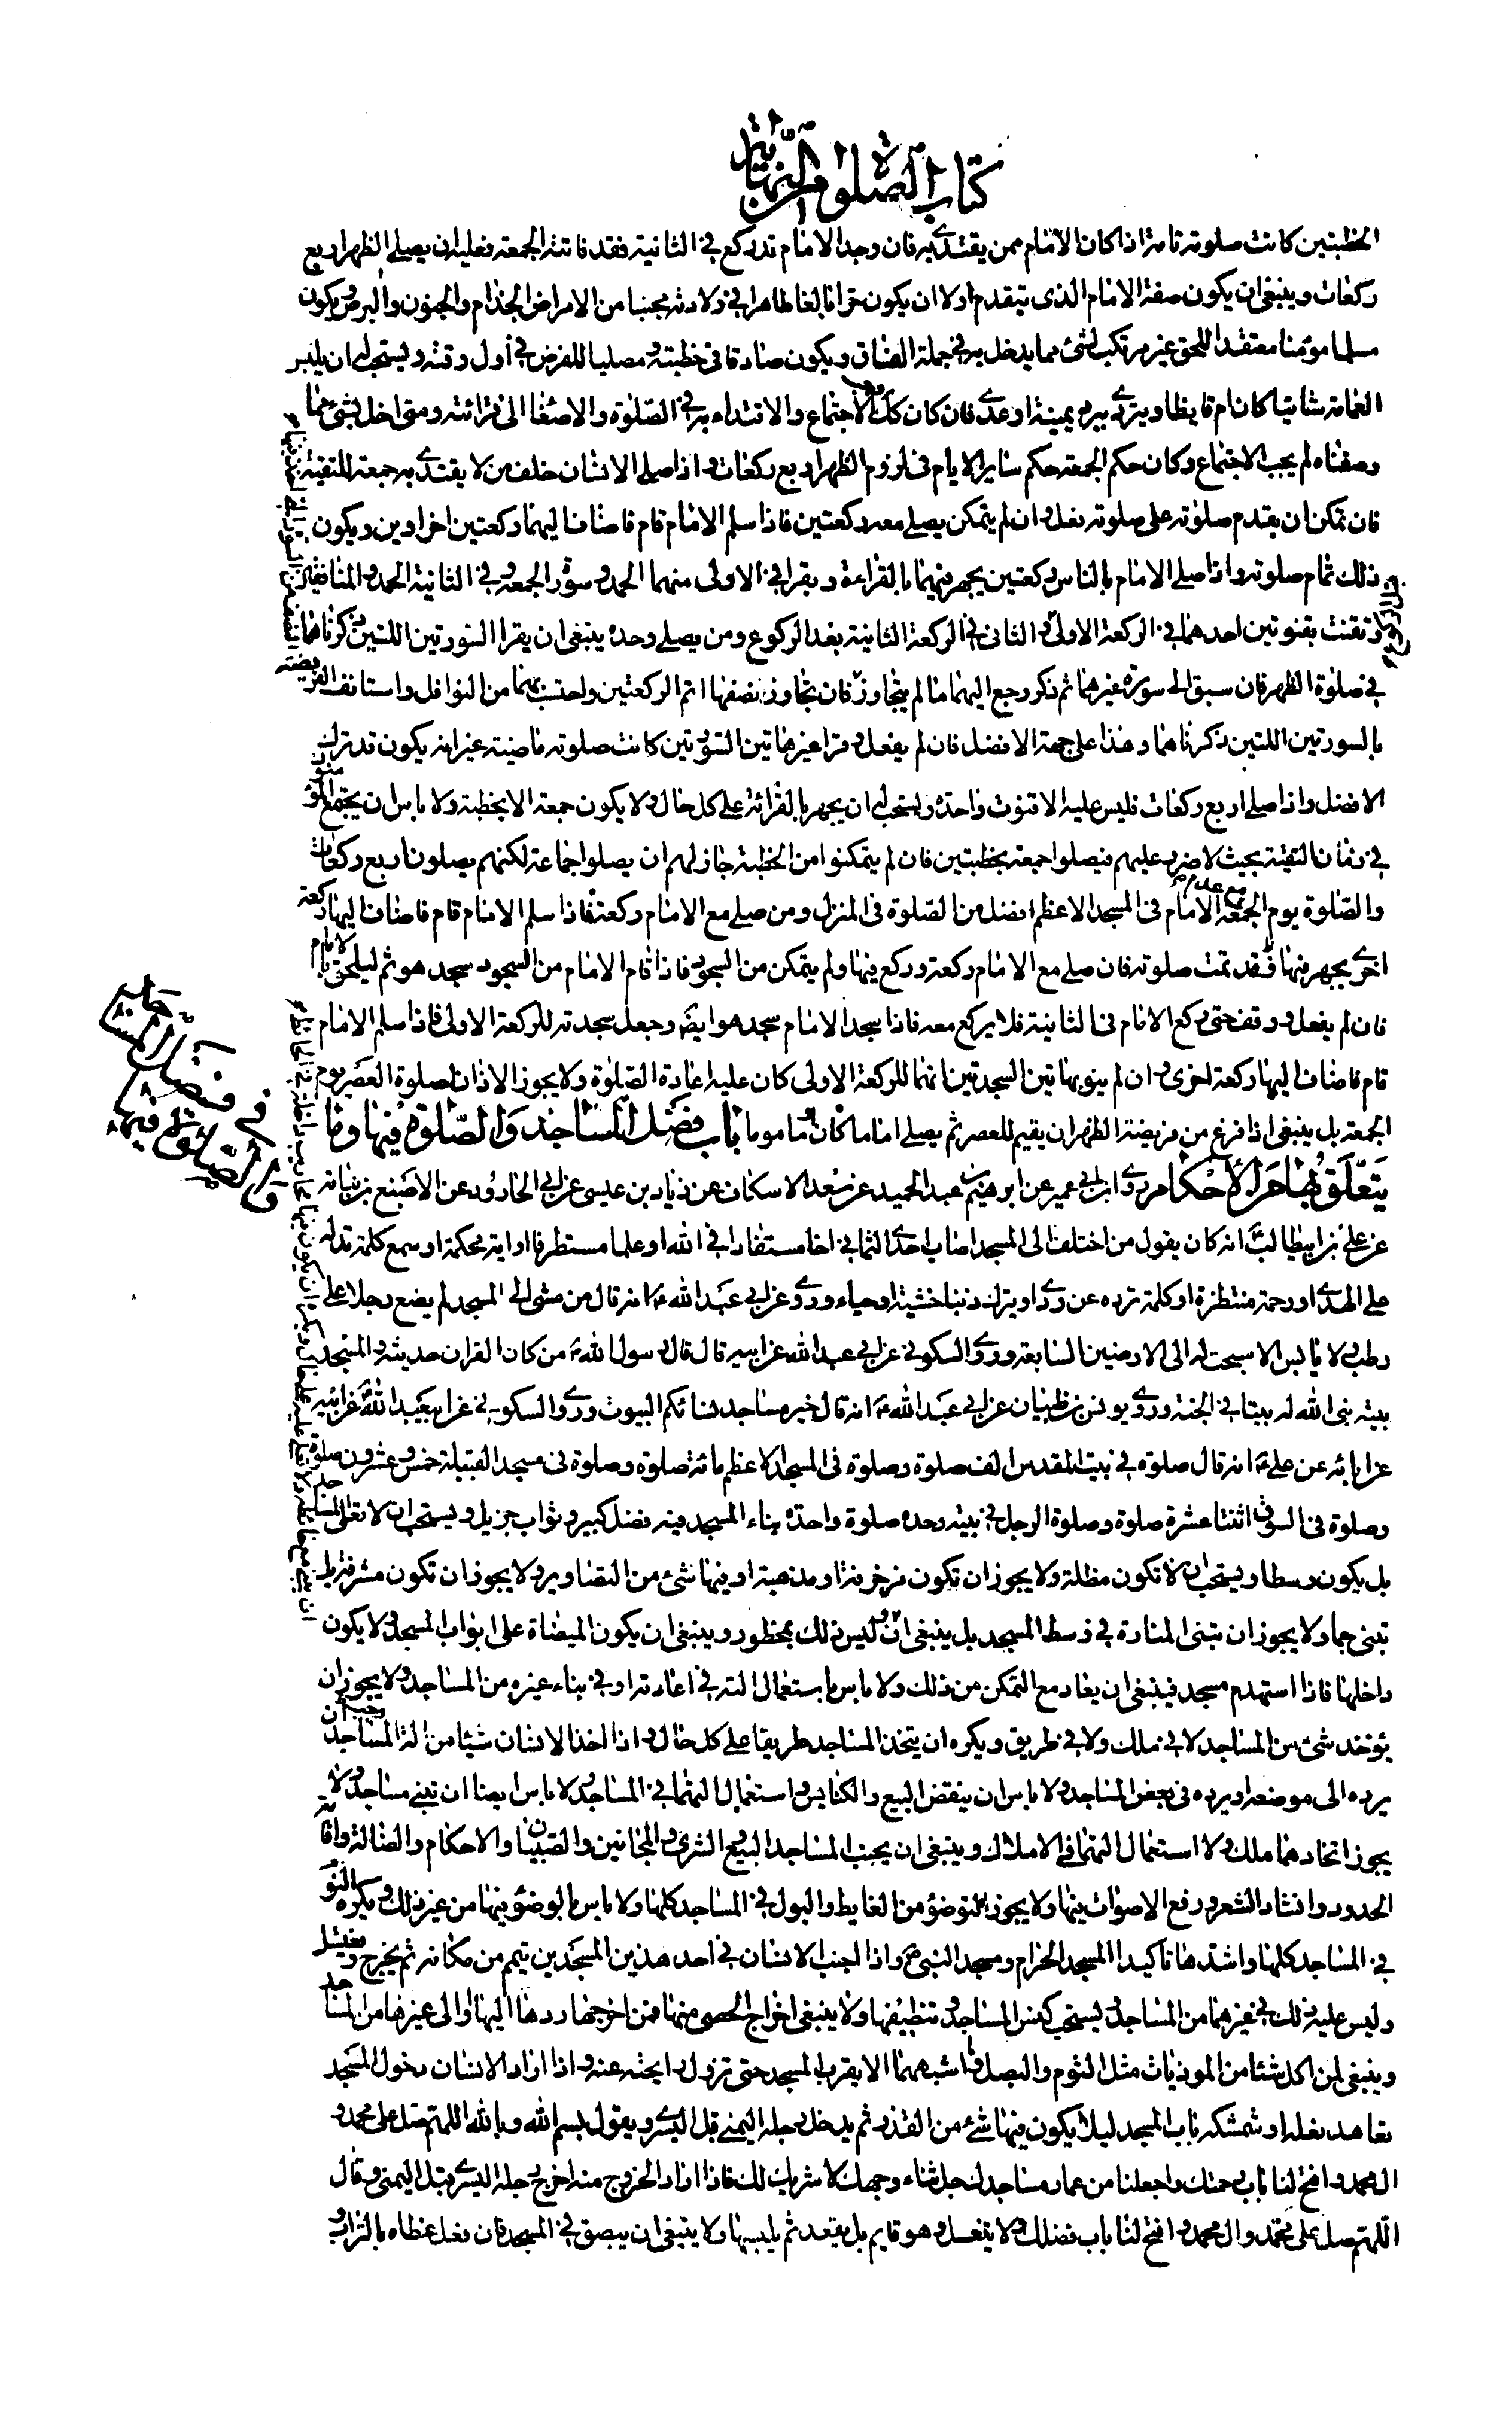 كتاب الصلوة من النهاية
الخطبتين كانت صلوته تامة اذا كان الامام ممن يقتدى به فان وجد الامام قد ركع في الثانية فقد فاتته الجمعة فعليه ان يصلي الظهر اربع
ركعات وينبغي ان يكون صفة الامام الذى يتقدم اولا ان يكون حرا بالغا طاهرا في ولادته مجنبا من الامراض الجذام والجنون والبرص ويكون
مسلما مؤمنا معتقدا للحق غير مرتكب لشئ مما يدخل به في جملة الفساق ويكون صادقا في خطبته ومصليا للفرض في اول وقته ويستحب له ان يلبس
العمامة شاتيا كان ام قايظا ويتردى ببرد يمنية او عدنى فان كان كذلك وجب الاجتماع والاقتداء به في الصلوة والاصغا الى قرائته ومتى اخل بشئ مما
وصفناه لم يجب الاجتماع وكان حكم الجمعة حكم ساير الايام في لزوم الظهر اربع ركعات واذا صلى الانسان خلف من لا يقتدى به جمعة للتقية
فان تمكن ان يقدم صلوته على صلوته فعل وان لم يتمكن يصلي معه ركعتين فاذا سلم الامام قام فاضاف اليهما ركعتين اخراوين ويكون
ذلك تمام صلوته واذا صلى الامام بالناس ركعتين يجهر فيهما بالقراءة ويقرا في الاولى منهما الحمد وسورة الجمعة وفي الثانية الحمد والمنافقين
وتقنت بقنوتين احدهما في الركعة الاولى والثاني في الركعة الثانية بعد الركوع ومن يصلي وحده ينبغي ان يقرا السورتين اللتين ذكرناهما
في صلوة الظهر فان سبق الى سورة غيرهما ثم ذكر رجع اليهما ما لم يتجاوز فان تجاوز نصفها اتم الركعتين واحتسب بهما من النوافل واستانف الفريضة
بالسورتين اللتين ذكرناهما وهذا على جهة الافضل فان لم يفعل وقرا غير هاتين السورتين كانت صلوته ماضية غير انه يكون قد ترك
الافضل واذا صلى اربع ركعات فليس عليه الا قنوت واحدة ويستحب ان يجهر بالقرائة على كل حال ولا يكون جمعة الا بخطبة ولا باس ان يجتمع المؤمنون
في زمان التقية بحيث لا ضرر عليهم فيصلوا جمعة بخطبتين فان لم يتمكنوا من الخطبة جاز لهم ان يصلوا جماعة لكنهم يصلون اربع ركعات
والصلوة يوم الجمعة مع عدم الامام في المسجد الاعظم افضل من الصلوة في المنزل ومن صلى مع الامام ركعة فاذا سلم الامام قام فاضاف اليها ركعة
اخرى يجهر فيها وقد تمت صلوته فان صلى مع الامام ركعة وركع فيها ولم يتمكن من السجود فاذا قام الامام من السجود سجد هو ثم ليلحق بالامام
فان لم يفعل ووقف حتى ركع الامام في الثانية فلا يركع معه فاذا سجد الامام سجد هو ايضا وجعل سجدته للركعة الاولى فاذا سلم الامام
قام فاضاف اليها ركعة اخرى وان لم ينو بهاتين السجدتين انهما للركعة الاولى كان عليه اعادة الصلوة ولا يجوز الاذان لصلوة العصر يوم
الجمعة بل ينبغي اذا فرغ من فريضة الظهر ان يقيم للعصر ثم يصلي اماما كان او ماموما باب فضل المساجد والصلوة فيها وما
يتعلق بها من الاحكام روى ابن ابي عمير عن ابرهيم بن عبد الحميد عن سعد الاسكاف عن زياد بن عيسى عن ابي الجارود عن الاصبغ بن نباته
عن علي بن ابيطالب انه كان يقول من اختلف الى المسجد اصاب احدى الثماني اخا مستفادا في الله او علما مستطرفا او اية محكمة او سمع كلمة تدله
على الهدى او رحمة منتظرة او كلمة ترده عن ردى او يترك ذنبا خشية او حياء وروى عن ابي عبد الله انه قال من مشى الى المسجد لم يضع رجلا على
رطب ولا يابس الا سبحت له الى الارضين السابعة وروى السكوني عن ابي عبد الله عن ابيه قال قال رسول الله من كان القران حديثه والمسجد
بيته بنى الله له بيتا في الجنة وروى يونس بن ظبيان عن ابي عبد الله انه قال خير مساجد نسائكم البيوت وروى السكوني عن ابيعبد الله عن ابيه
عن ابائه عن علي انه قال صلوة في بيت المقدس الف صلوة وصلوة في المسجد الاعظم مائة صلوة وصلوة في مسجد القبيلة خمس وعشرون صلوة
وصلوة في السوق اثنتا عشرة صلوة وصلوة الرجل في بيته وحده صلوة واحدة بناء المسجد فيه فضل كبير وثواب جزيل ويستحب ان لا تعلى المساجد
بل يكون وسطا ويستحب ان لا تكون مظلة ولا يجوز ان تكون مزخرفة او مذهبة او فيها شئ من التصاوير ولا يجوز ان تكون مشرفة بل
تبنى جما ولا يجوز ان تبنى المنارة في وسط المسجد بل ينبغي ان وليس ذلك بمحظور وينبغي ان يكون الميضاة على ابواب المسجد ولا يكون
داخلها فاذا استهدم مسجد فينبغي ان يعاد مع التمكن من ذلك ولا باس باستعمال الته في اعادته او في بناء غيره من المساجد ولا يجوز ان
يؤخذ شئ من المساجد لا في ملك ولا في طريق ويكره ان يتخذ المساجد طريقا على كل حال واذا اخذ الانسان شيئا من الة المساجد وجب ان
يرده الى موضعه او يرده في بعض المساجد ولا باس ان ينقض البيع والكنايس واستعمال التهما في المساجد ولا باس ايضا ان تبنى مساجد ولا
يجوز اتخاذهما ملك ولا استعمال التهما في الاملاك وينبغي ان يجنب المساجد البيع والشرى والمجانين والصبيان والاحكام والضالة واقامة
الحدود وانشاد الشعر ورفع الاصوات فيها ولا يجوز التوضؤ من الغايط والبول في المساجد كلها ولا باس بالوضوء فيها من غير ذلك ويكره النوم
في المساجد كلها واشدها تاكيدا المسجد الحرام ومسجد النبي واذا اجنب الانسان في احد هذين المسجدين تيمم من مكانه ثم يخرج ويغتسل
وليس عليه ذلك في غيرهما من المساجد ويستحب كنس المساجد وتنظيفها ولا ينبغي اخراج الحصى منها فمن اخرجها ردها اليها او الى غيرها من المساجد
وينبغي لمن اكل شئا من الموذيات مثل الثوم والبصل وما اشبههما الا يقرب المسجد حتى تزول رايحته عنه واذا اراد الانسان دخول المسجد
تعاهد نعله او شمشكه باب المسجد ليلا يكون فيها شئ من القذر ثم يدخل رجله اليمنى قبل اليسرى ويقول بسم الله وبالله اللهم صل على محمد و
ال محمد وافتح لنا باب رحمتك واجعلنا من عمار مساجدك جل ثناء وجهك لا شريك لك فاذا اراد الخروج منه اخرج رجله اليسرى قبل اليمنى وقال
اللهم صل على محمد وال محمد وافتح لنا باب فضلك ولا يتنعل وهو قايم بل يقعد ثم يلبسها ولا ينبغي ان يبصق في المسجد فان فعل غطاه بالتراب و
في فضل المساجد
والصلوة فيها